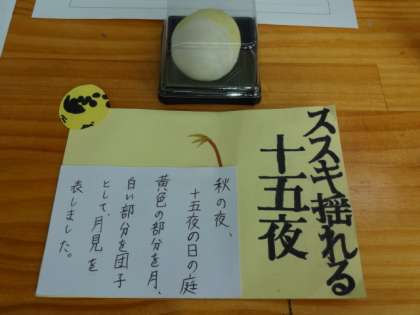 ススキ揺れる
十五夜
秋の夜、
十五夜の日の庭
黄色の部分を月、
白い部分を団子
として、月見を
表しました。